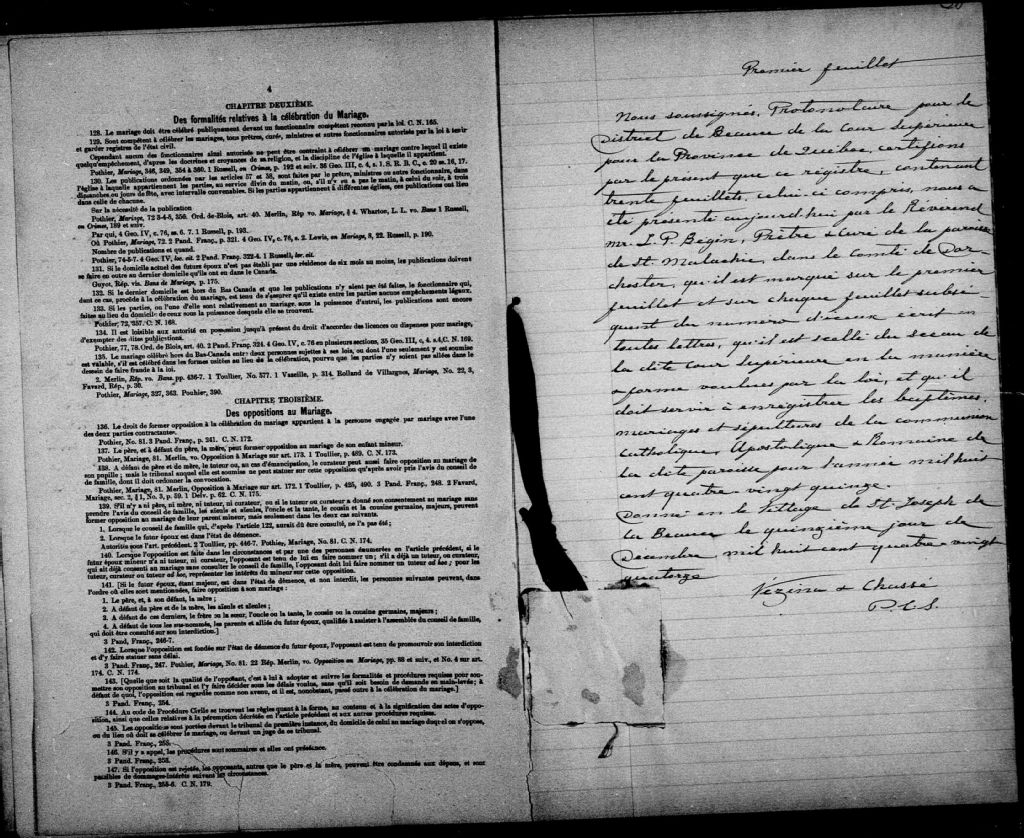 4
CHAPITRE DEUXIÈME.
Des formalités relatives à la célébration du Mariage.
128. Le mariage doit être célébré publiquement devant un fonctionnaire compétent reconnu par la loi. C. N. 165.
129. Sont compétent à célébrer les mariages, tous prêtres, curés, ministres et autres fonctionnaires autorisés par la loi à tenir
et garder registres de l'état civil.
Cependant aucun des fonctionnaires ainsi autorisés ne peut être contraint à célébrer un mariage contre lequel il existe
quelqu'empêchement, d'après les doctrines et croyances de sa religion, et la discipline de l'église à laquelle il appartient.
Pothier, Mariage, 346, 349, 354 à 360. 1 Russell, on Crimes, p. 192 et suiv. 36 Geo. III, c. 4, s. 1. S. R. B. C., c. 20 ss. 16, 17.
130. Les publications ordonnées par les articles 57 et 58, sont faites par le prêtre, ministre ou autre fonctionnaire, dans
l'église à laquelle appartiennent les parties, au service divin du matin, ou, s'il n'y en a pas le matin, à celui du soir, à trois
dimanches ou jours de fête, avec intervalle convenables. Si les parties appartiennent à différentes églises, ces publications ont lieu
dans celle de chacune.
Sur la nécessité de la publication
Pothier, Mariage, 72 3-4-5, 356. Ord. de Blois, art. 40. Merlin, Rép vo. Mariage, § 4. Wharton, L. L. vo. Bans 1 Russell,
on Crimes, 189 et suiv.
Par qui, 4 Geo. IV, c. 76, ss. 6. 7. 1 Russell, p. 193.
Où Pothier, Mariage, 72. 2 Pand. Franç., p. 321. 4 Geo. IV, c. 76, s. 2. Lewis, on Mariage, 8, 22. Russell, p. 190.
Nombre de publications et quand.
Pothier, 74-5-7. 4 Geo. IV, loc. cit. 2 Pand. Franç. 322-4. 1 Russell, loc. cit.
131. Si le domicile actuel des futurs époux n'est pas établi par une résidence de six mois au moins, les publications doivent
se faire en outre au dernier domicile qu'ils ont eu dans le Canada.
Guyot, Rép. vis. Bans de Mariage, p. 175.
132. Si le dernier domicile est hors du Bas Canada et que les publications n'y aient pas été faites, le fonctionnaire qui,
dans ce cas, procède à la célébration du mariage, est tenu de s'assurer qu'il existe entre les parties aucuns empêchements légaux.
133. Si les parties, ou l'une d'elle sont relativement au mariage, sous la puissance d'autrui, les publications sont encore
faites au lieu du domicile de ceux sous la puissance desquels elle se trouvent.
Pothier, 72, 357. C. N. 168.
134. Il est loisible aux autorités en possession jusqu'à présent du droit d'accorder des licences ou dispenses pour mariage,
d'exempter des dites publications.
Pothier, 77, 78. Ord. de Blois, art. 40. 2 Pand. Franç. 324. 4 Geo. IV, c. 76 en plusieurs sections, 35 Geo. III, c. 4. s.4, C. N. 169.
135. Le mariage célébré hors du Bas-Canada entre deux personnes sujettes à ses lois, ou dont l'une seulement y est soumise
est valable, s'il est célébré dans les formes usitées au lieu de la célébration, pourvu que les parties n'y soient pas allées dans le
dessein de faire fraude à la loi.
2. Merlin, Rép. vo. Bans, pp. 436-7. 1 Toullier, No. 577. 1 Vazeille, p. 314. Rolland de Villargues, Mariage, No. 22, 3,
Favard, Rép., p. 30.
Pothier, Mariage, 327, 363. Pouhier, 390.
CHAPITRE TROISIÈME.
Des oppositions au Mariage.
136. Le droit de former opposition à la célébration du mariage appartient à la personne engagée par mariage avec l'une
des deux parties contractantes.
Pothier, No. 81. 3 Pand. Franç, p. 241. C. N. 172.
137. Le père, et à défaut du père, la mère, peut former opposition au mariage de son enfant mineur.
Pothier, Mariage, 81. Merlin, vo. Opposition à Mariage sur art. 173. 1 Toullier, p. 489. C. N. 173.
138. A défaut de père et de mère, le tuteur ou, au cas d'émancipation, le curateur peut aussi faire opposition au mariage de
son pupille; mais le tribunal auquel elle est soumise ne peut statuer sur cette opposition qu'après avoir pris l'avis du conseil de
famille, dont il doit ordonner la convocation.
Pothier, Mariage, 81. Merlin, Opposition à Mariage sur art. 172. 1 Toullier, p. 425, 490. 3 Pand. Franç, 248. 2 Favard,
Mariage, sec. 2, § 1, No. 3, p. 59. 1 Delv. p. 62. C. N. 175.
139. S'il n'y a ni père, ni mère, ni tuteur, ni curateur, ou si le tuteur ou curateur a donné son consentement au mariage sans
prendre l'avis du conseil de famille, les aïeuls et aïeules, l'oncle et la tante, le cousin et la cousine germains, majeurs, peuvent
former opposition au mariage de leur parent mineur, mais seulement dans les deux cas suivants.
1. Lorsque le conseil de famille qui, d'après l'article 122, aurait dû être consulté, ne l'a pas été;
2. Lorsque le futur époux est dans l'état de démence.
Autorités sous l'art. précédent. 2 Toullier, pp. 446-7. Pothier, Mariage, No. 81. C. N. 174.
140. Lorsque l'opposition est faite dans les circonstances et par une des personnes énumérées en l'article précédent, si le
futur époux mineur n'a ni tuteur, ni curateur, l'opposant est tenu de lui en faire nommer un; s'il a déjà un tuteur, ou curateur,
qui ait déjà consenti au mariage sans consulter le conseil de famille, l'opposant doit lui faire nommer un tuteur ad hoc; pour les
tuteur, curateur ou tuteur ad hoc, représenter les intérêts du mineur sur cette opposition.
141. [Si le futur époux, étant majeur, est dans l'état de démence, et non interdit, les personnes suivantes peuvent, dans
l'ordre où elles sont mentionnées, faire opposition à son mariage:
1. Le père, et, à son défaut, la mère;
2. A défaut du père et de la mère, les aïeuls et aïeules;
3. A défaut de ces derniers, le frère ou la sœur, l'oncle ou la tante, le cousin ou la cousine germains, majeurs;
4. A défaut de tous les sus-nommés, les parents et alliés du futur époux, qualifiés à assister à l'assemblée du conseil de famille,
qui doit être consulté sur son interdiction.]
3 Pand, Franç., 246-7.
142. Lorsque l'opposition est fondée sur l'état de démence du futur époux, l'opposant est tenu de promouvoir son interdiction
et d'y faire statuer sans délai.
3 Pand. Franç., 247. Pothier, Mariage, No. 81. 22 Rép. Merlin, vo. Opposition au Mariage, pp. 88 et suiv., et No. 4 sur art.
174. C. N. 174.
143. [Quelle que soit la qualité de l'opposant, c'est à lui à adopter et suivre les formalités et procédures requises pour sou-
mettre son opposition au tribunal et l'y faire décider sous les délais voulus, sans qu'il soit besoin de demande en main-levée; à
défaut de quoi, l'opposition est regardée comme non avenue, et il est, nonobstant, passé outre à la célébration du mariage.]
3 Pand. Franç., 254.
144. Au code de Procédure Civile se trouvent les règles quant à la forme, au contenu et à la signification des actes d'oppo-
sition, ainsi que celles relatives à la péremption décrétée en l'article précédent et aux autres procédures requises.
145. Les oppositions sont portées devant le tribunal de première instance, du domicile de celui au mariage duquel on s'oppose,
ou du lieu où doit se célébrer le mariage, ou devant un juge de ce tribunal.
3 Pand. Franç., 255.
146. S'il y a appel, les procédures sont sommaires et elles ont préséance.
3 Pand. Franç., 258.
147. Si l'opposition est rejetée, les opposants, autres que le père et la mère, peuvent être condamnés aux dépens, et sont
passibles de dommages-intérêts suivant les circonstances.
3 Pand. Franç., 258-6. C. N. 179.
Premier feuillet
Nous soussignés, Protonotaire pour le
District de Beauce de la Cour Supérieure
pour la Province de Québec, certifions
par le présent que ce registre, contenant
trente feuillets, celui-ci compris, nous a
été présenté aujourd'hui par le Révérend
Mr. J. P. Bégin, Prêtre & Curé de la paroisse
de St. Malachie, dans le Comté de Dor-
chester, qu'il est marqué sur le premier
feuillet et sur chaque feuillet subsé
quent du numéro d'iceux écrit en
toutes lettres, qu'il est scellé du sceau de
la dite Cour Supérieure en la manière
& forme voulues par la loi, et qu'il
doit servir à enregistrer les baptêmes,
mariages et sépultures de la communion
Catholique, Apostolique & Romaine de
la dite paroisse pour l'année mil huit
cent quatre-vingt quinze.
Donné en le Village de St-Joseph de
la Beauce le quinzième jour de
Décembre mil huit cent quatre-vingt
quatorze
Vézina & Chassé
P.C.S.